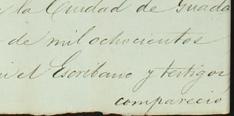 la Ciudad de Guada
de mil ochocientos
el Escribano y testigos
comparecio